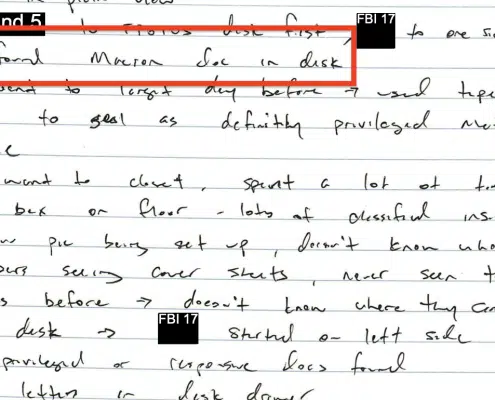 nd 5 to disk first, FBI 17 to one si
found Macron doc in disk
went to target day before → used tape
to seal as definitly privileged
want to closet, spent a lot of
box on floor - lots of classified ins
pic being set up, doesn't know who
seeing cover sheets, never seen t
s before → doesn't know where they
disk → FBI 17 started on left side
privileged or responsive docs found
letters in desk drawer